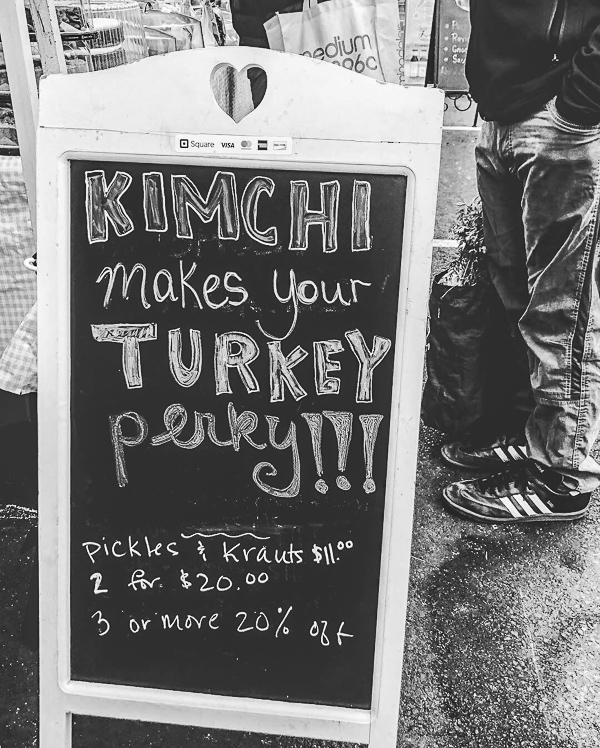 medium
Square VISA
KIMCHI
makes your
TURKEY
perky!!!
Pickles & Krauts $11.00
2 for $20.00
3 or more 20% off